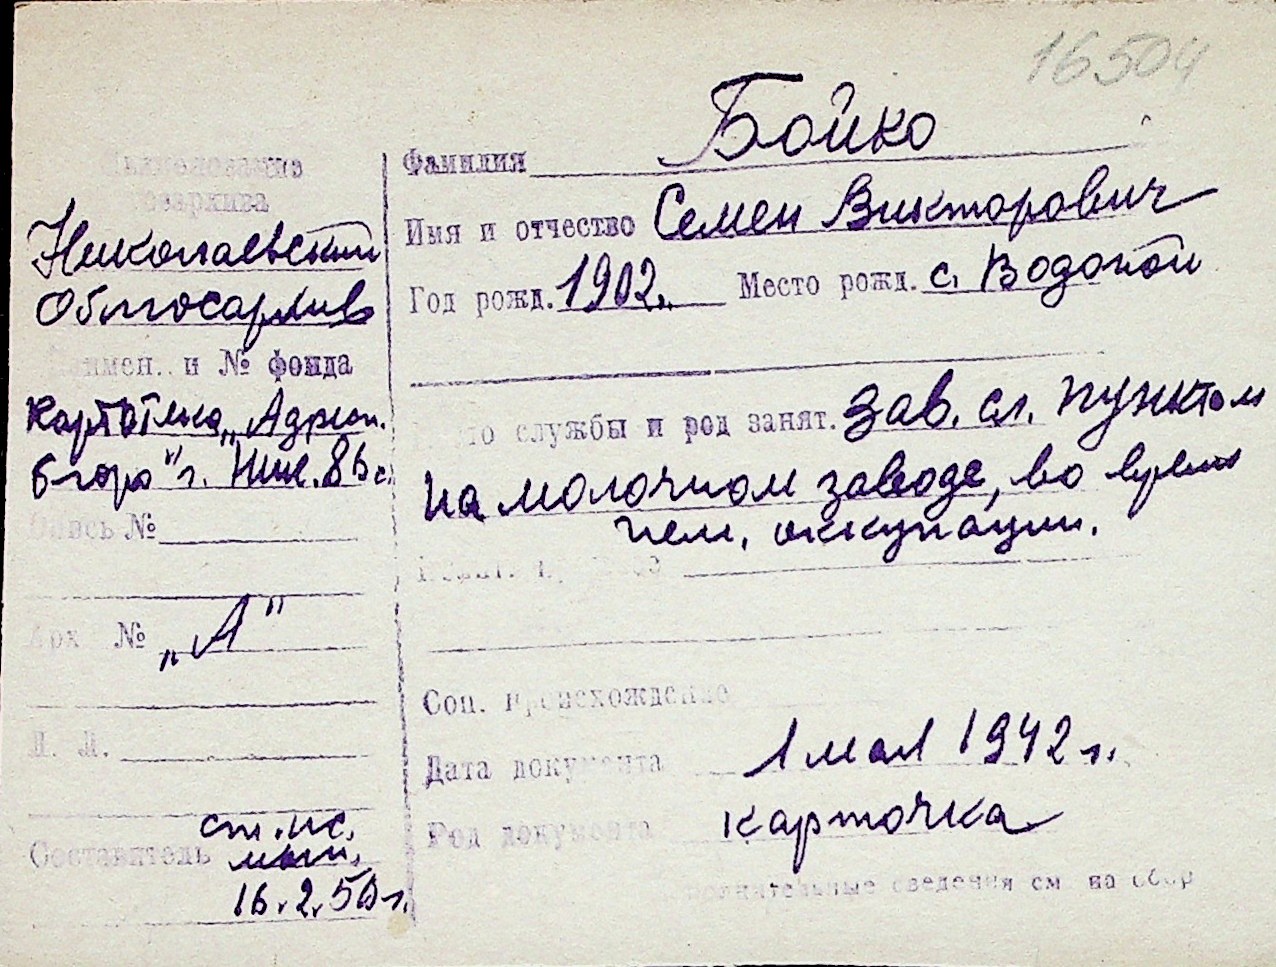 16504
Наименование
госархива
Николаевский
Облгосархив
Наимен. и № фонда
картотека „Адресн.
бюро" г. Ник.
Опись №
Арх №
„А"
Л. Л.
Составитель ст. нс.
16.2.50 г.
Фамилия Бойко
Имя и отчество Семен Викторович
Год рожд. 1902 г. Место рожд. с. Водопой
Место службы и род занят. Зав. сл. пунктом
на молочном заводе, во время
нем. оккупации.
Соц. происхождение
Дата документа 1 мая 1942 г.
Род документа карточка
Дополнительные сведения см на обор